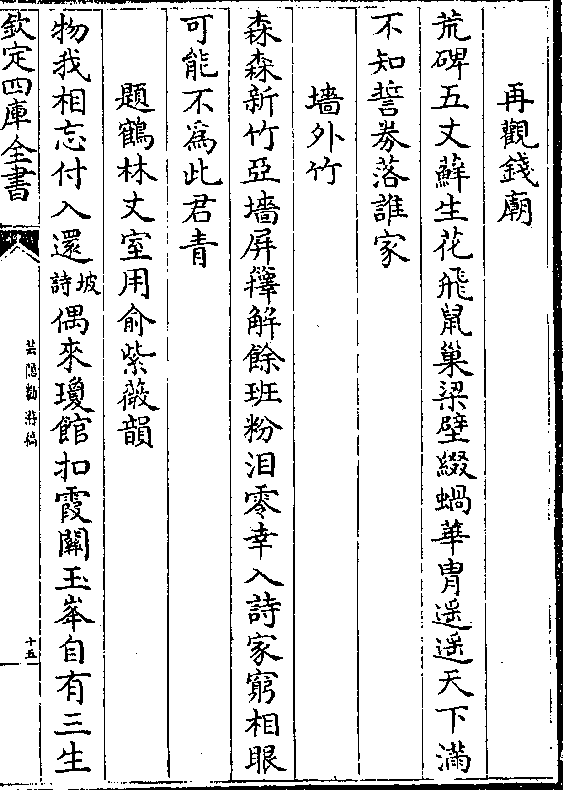 再觀錢廟
荒碑五丈蘚生花飛鼠巢梁壁綴蝸華冑遥遥天下滿
不知誓券落誰家
墻外竹
森森新竹亞墻屏籜解餘班粉泪零幸入詩家窮相眼
可能不爲此君青
題鶴林丈室用俞紫薇韻
物我相忘付入還坡詩偶來瓊館扣霞關玉峯自有三生
欽定四庫全書
芸隠勸游稿
十五